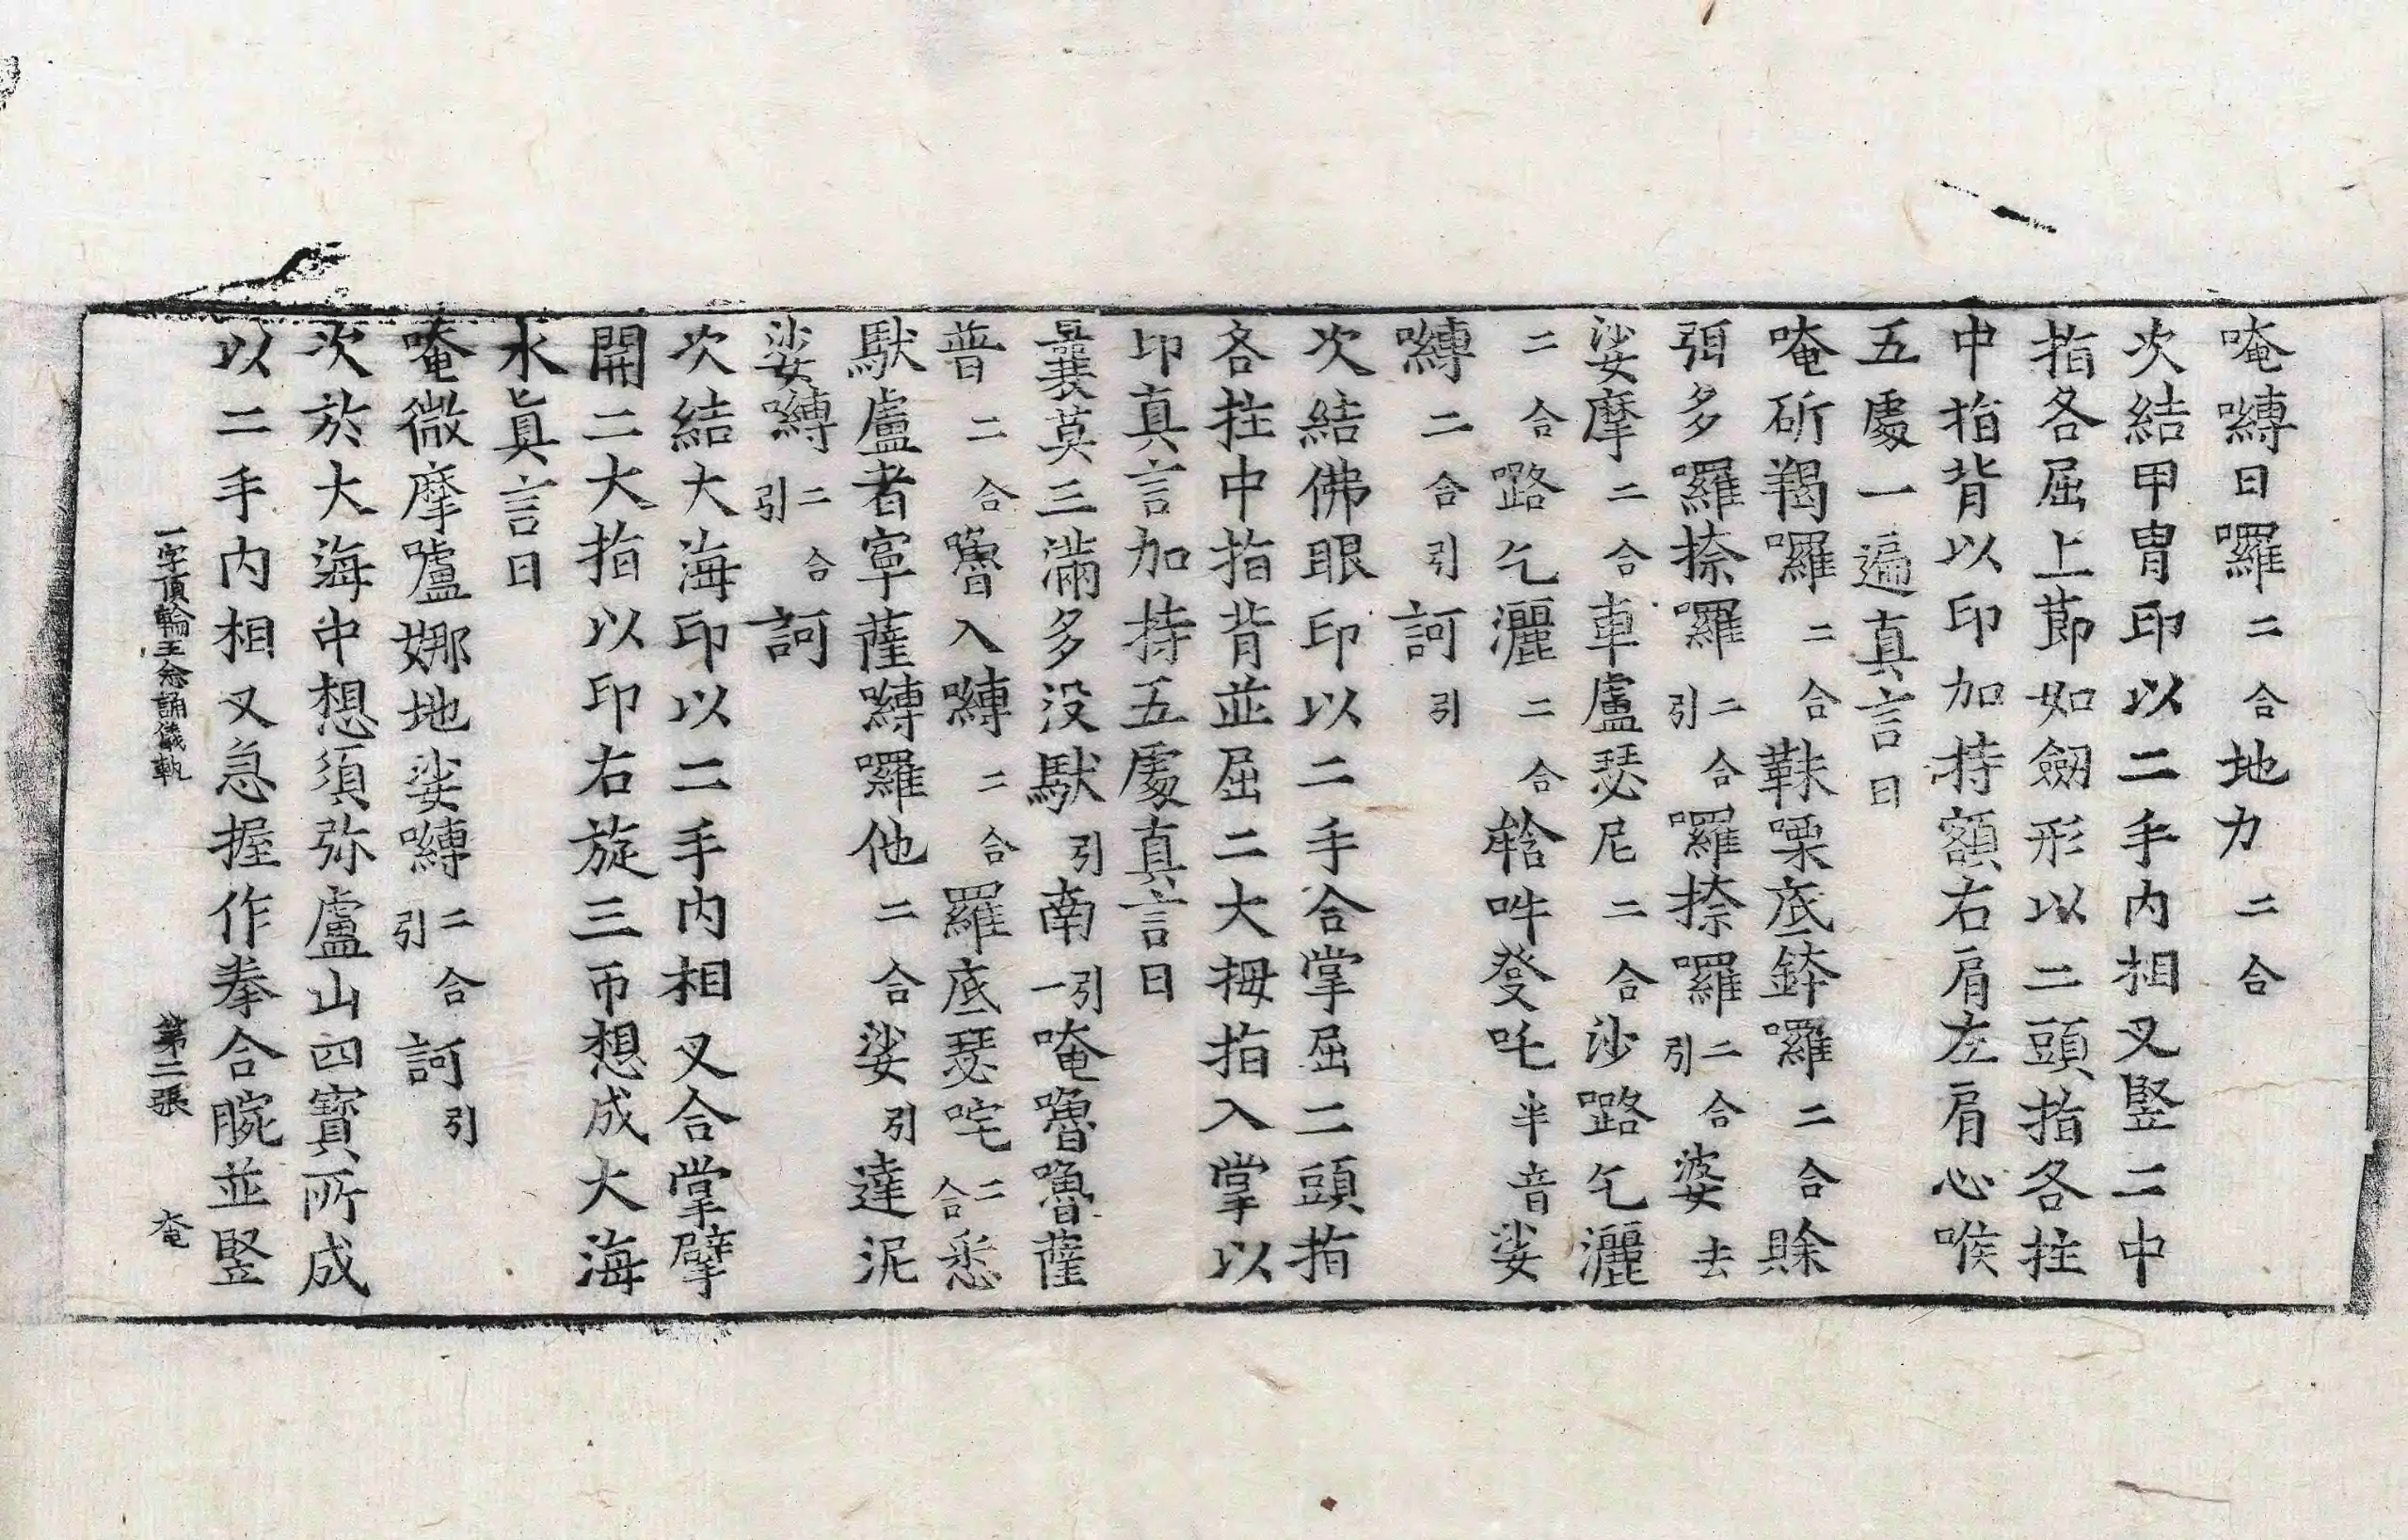 唵嚩日囉二合地力二合
次結甲冑印以二手內相叉豎二中
指各屈上莭如劒形以二頭指各拄
中指背以印加持額右肩左肩心喉
五處一遍真言曰
唵斫羯囉二合靺㗚底鉢囉二合賖
弭多囉捺囉二合引囉捺囉二合引婆去
娑摩二合車盧瑟尼二合沙㘕乞灑
二合㘕乞灑二合𤚥吽發吒半音娑
嚩二合引訶引
次結佛眼印以二手合掌屈二頭指
各拄中指背並屈二大拇指入掌以
印真言加持五處真言曰
曩莫三滿多没馱引南引一唵嚕嚕薩
普二合嚕入嚩二合羅底瑟咤二合悉
馱盧者寧薩嚩囉他二合娑引達泥
娑嚩二合引訶
次結大海印以二手內相叉合掌擘
開二大指以印右旋三帀想成大海
水眞言曰
唵微摩嚧娜地娑嚩二合引訶引
次於大海中想須弥盧山四寶所成
以二手內相叉急握作拳合腕並豎
一字頂輪王念誦儀軌 第二張 奄